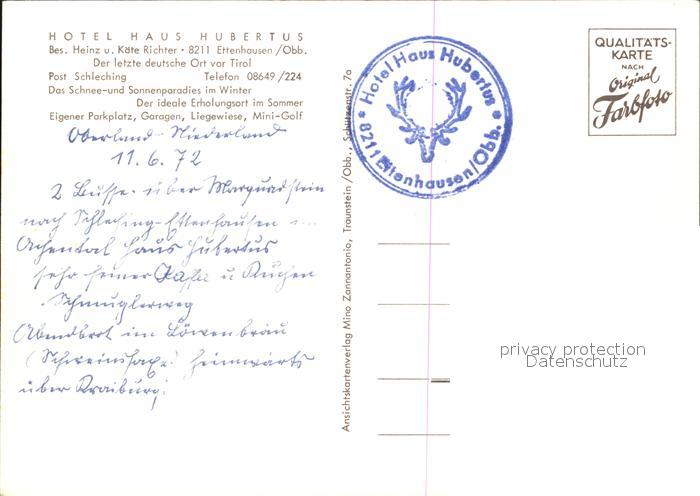 HOTEL HAUS HUBERTUS
Bes. Heinz u. Käte Richter · 8211 Ettenhausen/Obb.
Der letzte deutsche Ort vor Tirol
Post Schleching Telefon 08649/224
Das Schnee-und Sonnenparadies im Winter
Der ideale Erholungsort im Sommer
Eigener Parkplatz, Garagen, Liegewiese, Mini-Golf
Oberland - Niederland
11.6.72
2 Busse über Marquardstein
nach Schleching-Ettenhausen
Achental Haus Hubertus
sehr feiner Kaffee u Kuchen
Schmuglerweg
Abendbrot im Löwenbräu
(Schweinshaxe! heimwärts
über Kraiburg!
Ansichtskartenverlag Mino Zannantonio, Traunstein/Obb., Schützenstr. 7a
* Hotel Haus Hubertus *
8211 Ettenhausen/Obb.
QUALITÄTS-
KARTE
NACH
Original
Farbfoto
privacy protection
Datenschutz